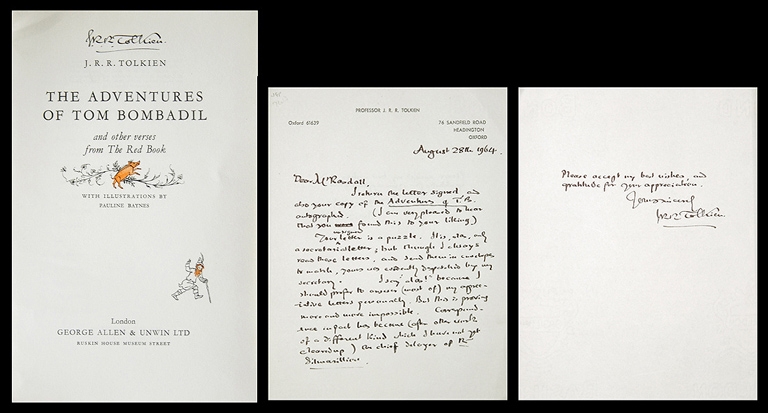 J.R.R. Tolkien.
J. R. R. TOLKIEN
THE ADVENTURES
OF TOM BOMBADIL
and other verses
from The Red Book
WITH ILLUSTRATIONS BY
PAULINE BAYNES
London
GEORGE ALLEN & UNWIN LTD
RUSKIN HOUSE MUSEUM STREET
PROFESSOR J. R. R. TOLKIEN
Oxford 61639
76 SANDFIELD ROAD
HEADINGTON
OXFORD
August 28th 1964.
Dear Mr Randall,
I return the letter signed, and
also your copy of the Adventures of T.B.
autographed. (I am very pleased to hear
that you found this to your liking.)
Your unsigned letter is a puzzle. It is, alas, only
a secretarial letter; but though I always
read these letters, and send them in envelopes
to match, yours was evidently despatched by my
secretary. I say 'alas!' because I
should prefer to answer (most of) my apprec-
iative letters personally. But this is proving
more and more impossible. Correspond-
ence in fact has become (after other work
of a different kind which I have not yet
cleared up) the chief delayer of The
Silmarillion.
Please accept my best wishes, and
gratitude for your appreciation.
Yours sincerely
J.R.R. Tolkien